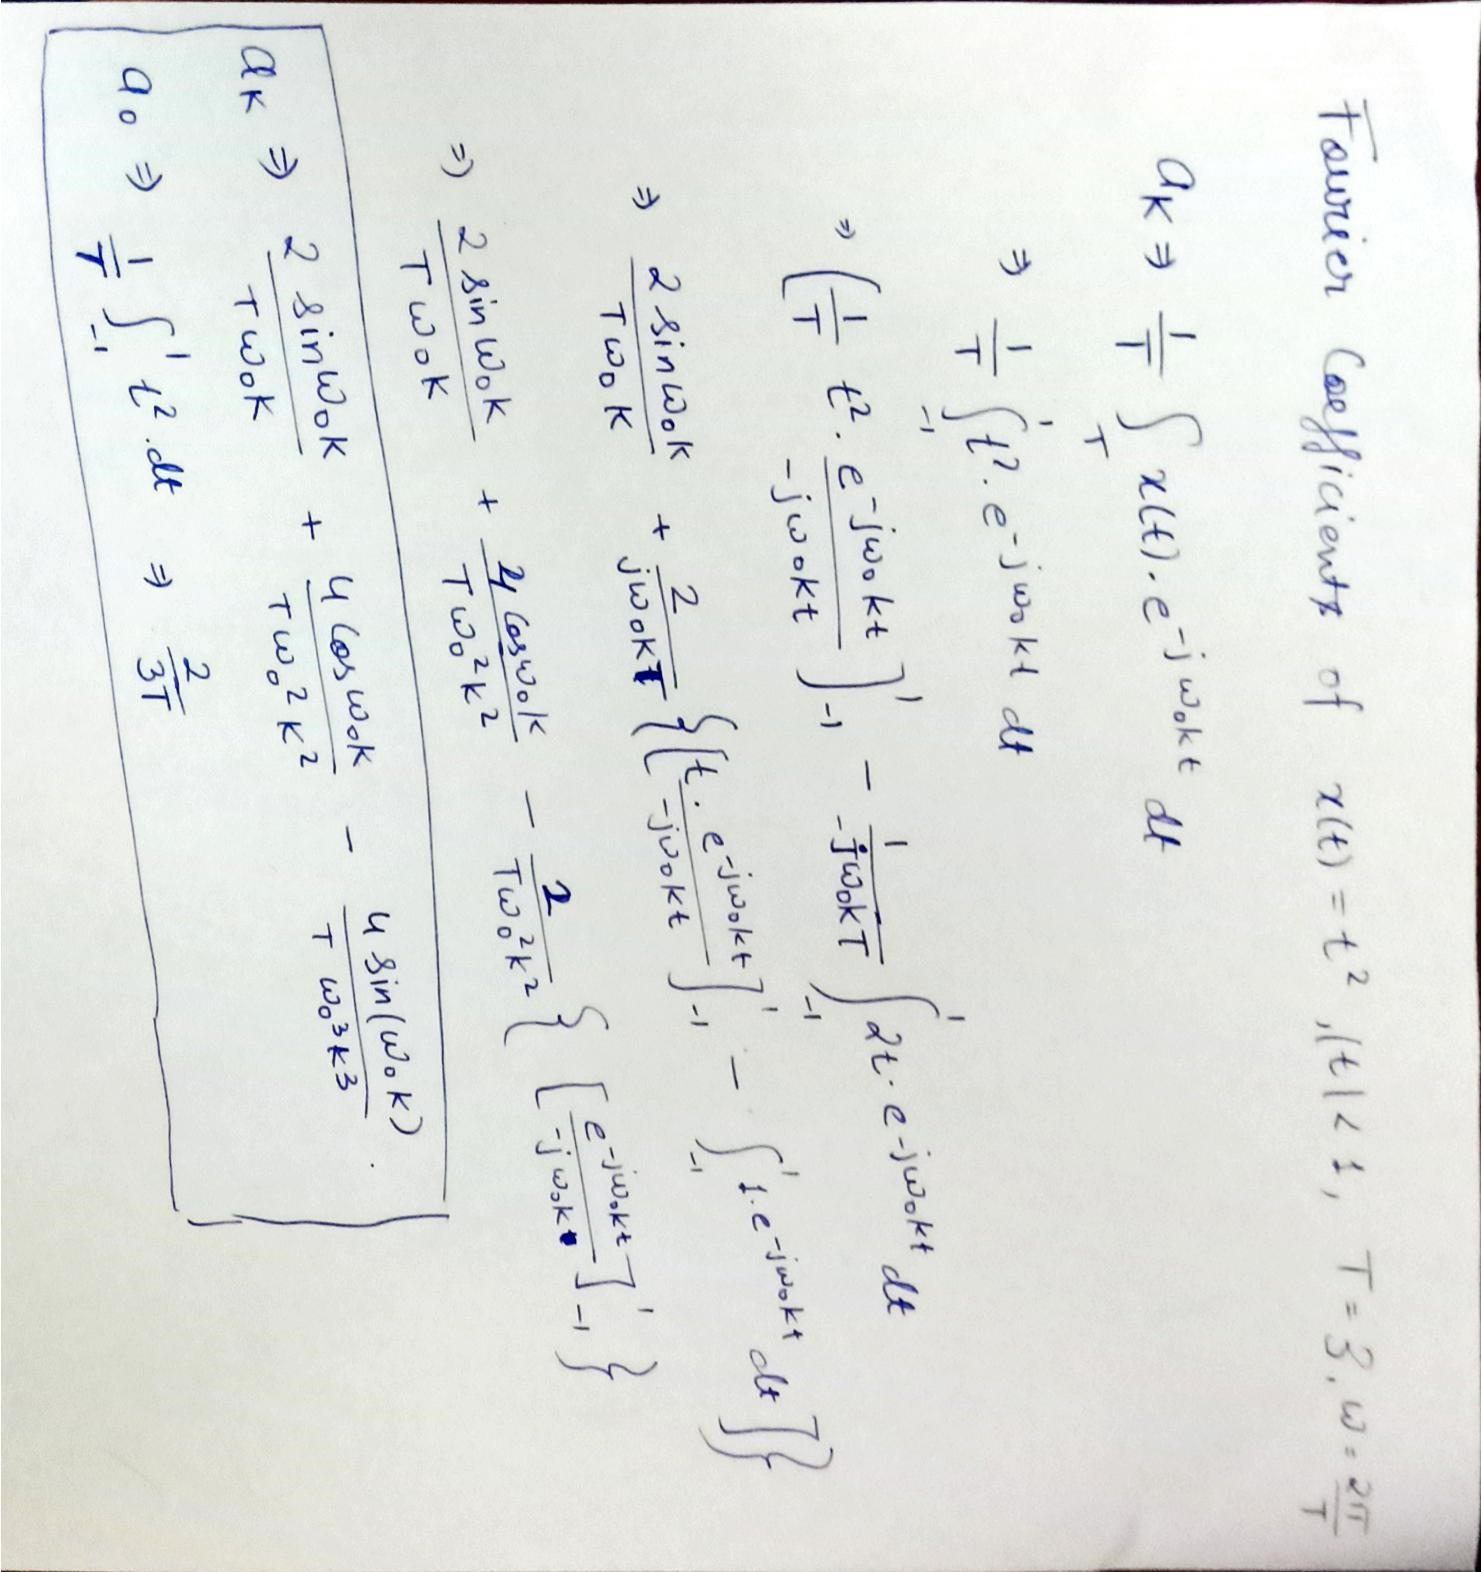 Fourier Coefficients of x(t) = t², |t| < 1, T = 3, ω = 2π/T
aₖ ⇒ 1/T ∫_T x(t) . e^(-jω₀kt) dt
⇒ 1/T ∫_{-1}^{1} t² . e^(-jω₀kt) dt
⇒ (1/T t² . e^(-jω₀kt)/(-jω₀kt)]_{-1}^{1} - 1/(-jω₀kT) ∫_{-1}^{1} 2t . e^(-jω₀kt) dt
⇒ 2 sinω₀k/(Tω₀k) + 2/(jω₀kT) {[t . e^(-jω₀kt)/(-jω₀kt)]_{-1}^{1} - ∫_{-1}^{1} 1 . e^(-jω₀kt) dt]}
⇒ 2 sinω₀k/(Tω₀k) + 4 Cosω₀k/(Tω₀²k²) - 2/(Tω₀²k²) {[e^(-jω₀kt)/(-jω₀k)]_{-1}^{1}}
aₖ ⇒ 2 sinω₀k/(Tω₀k) + 4 Cosω₀k/(Tω₀²k²) - 4 sin(ω₀k)/(Tω₀³k³) .
a₀ ⇒ 1/T ∫_{-1}^{1} t² . dt ⇒ 2/3T